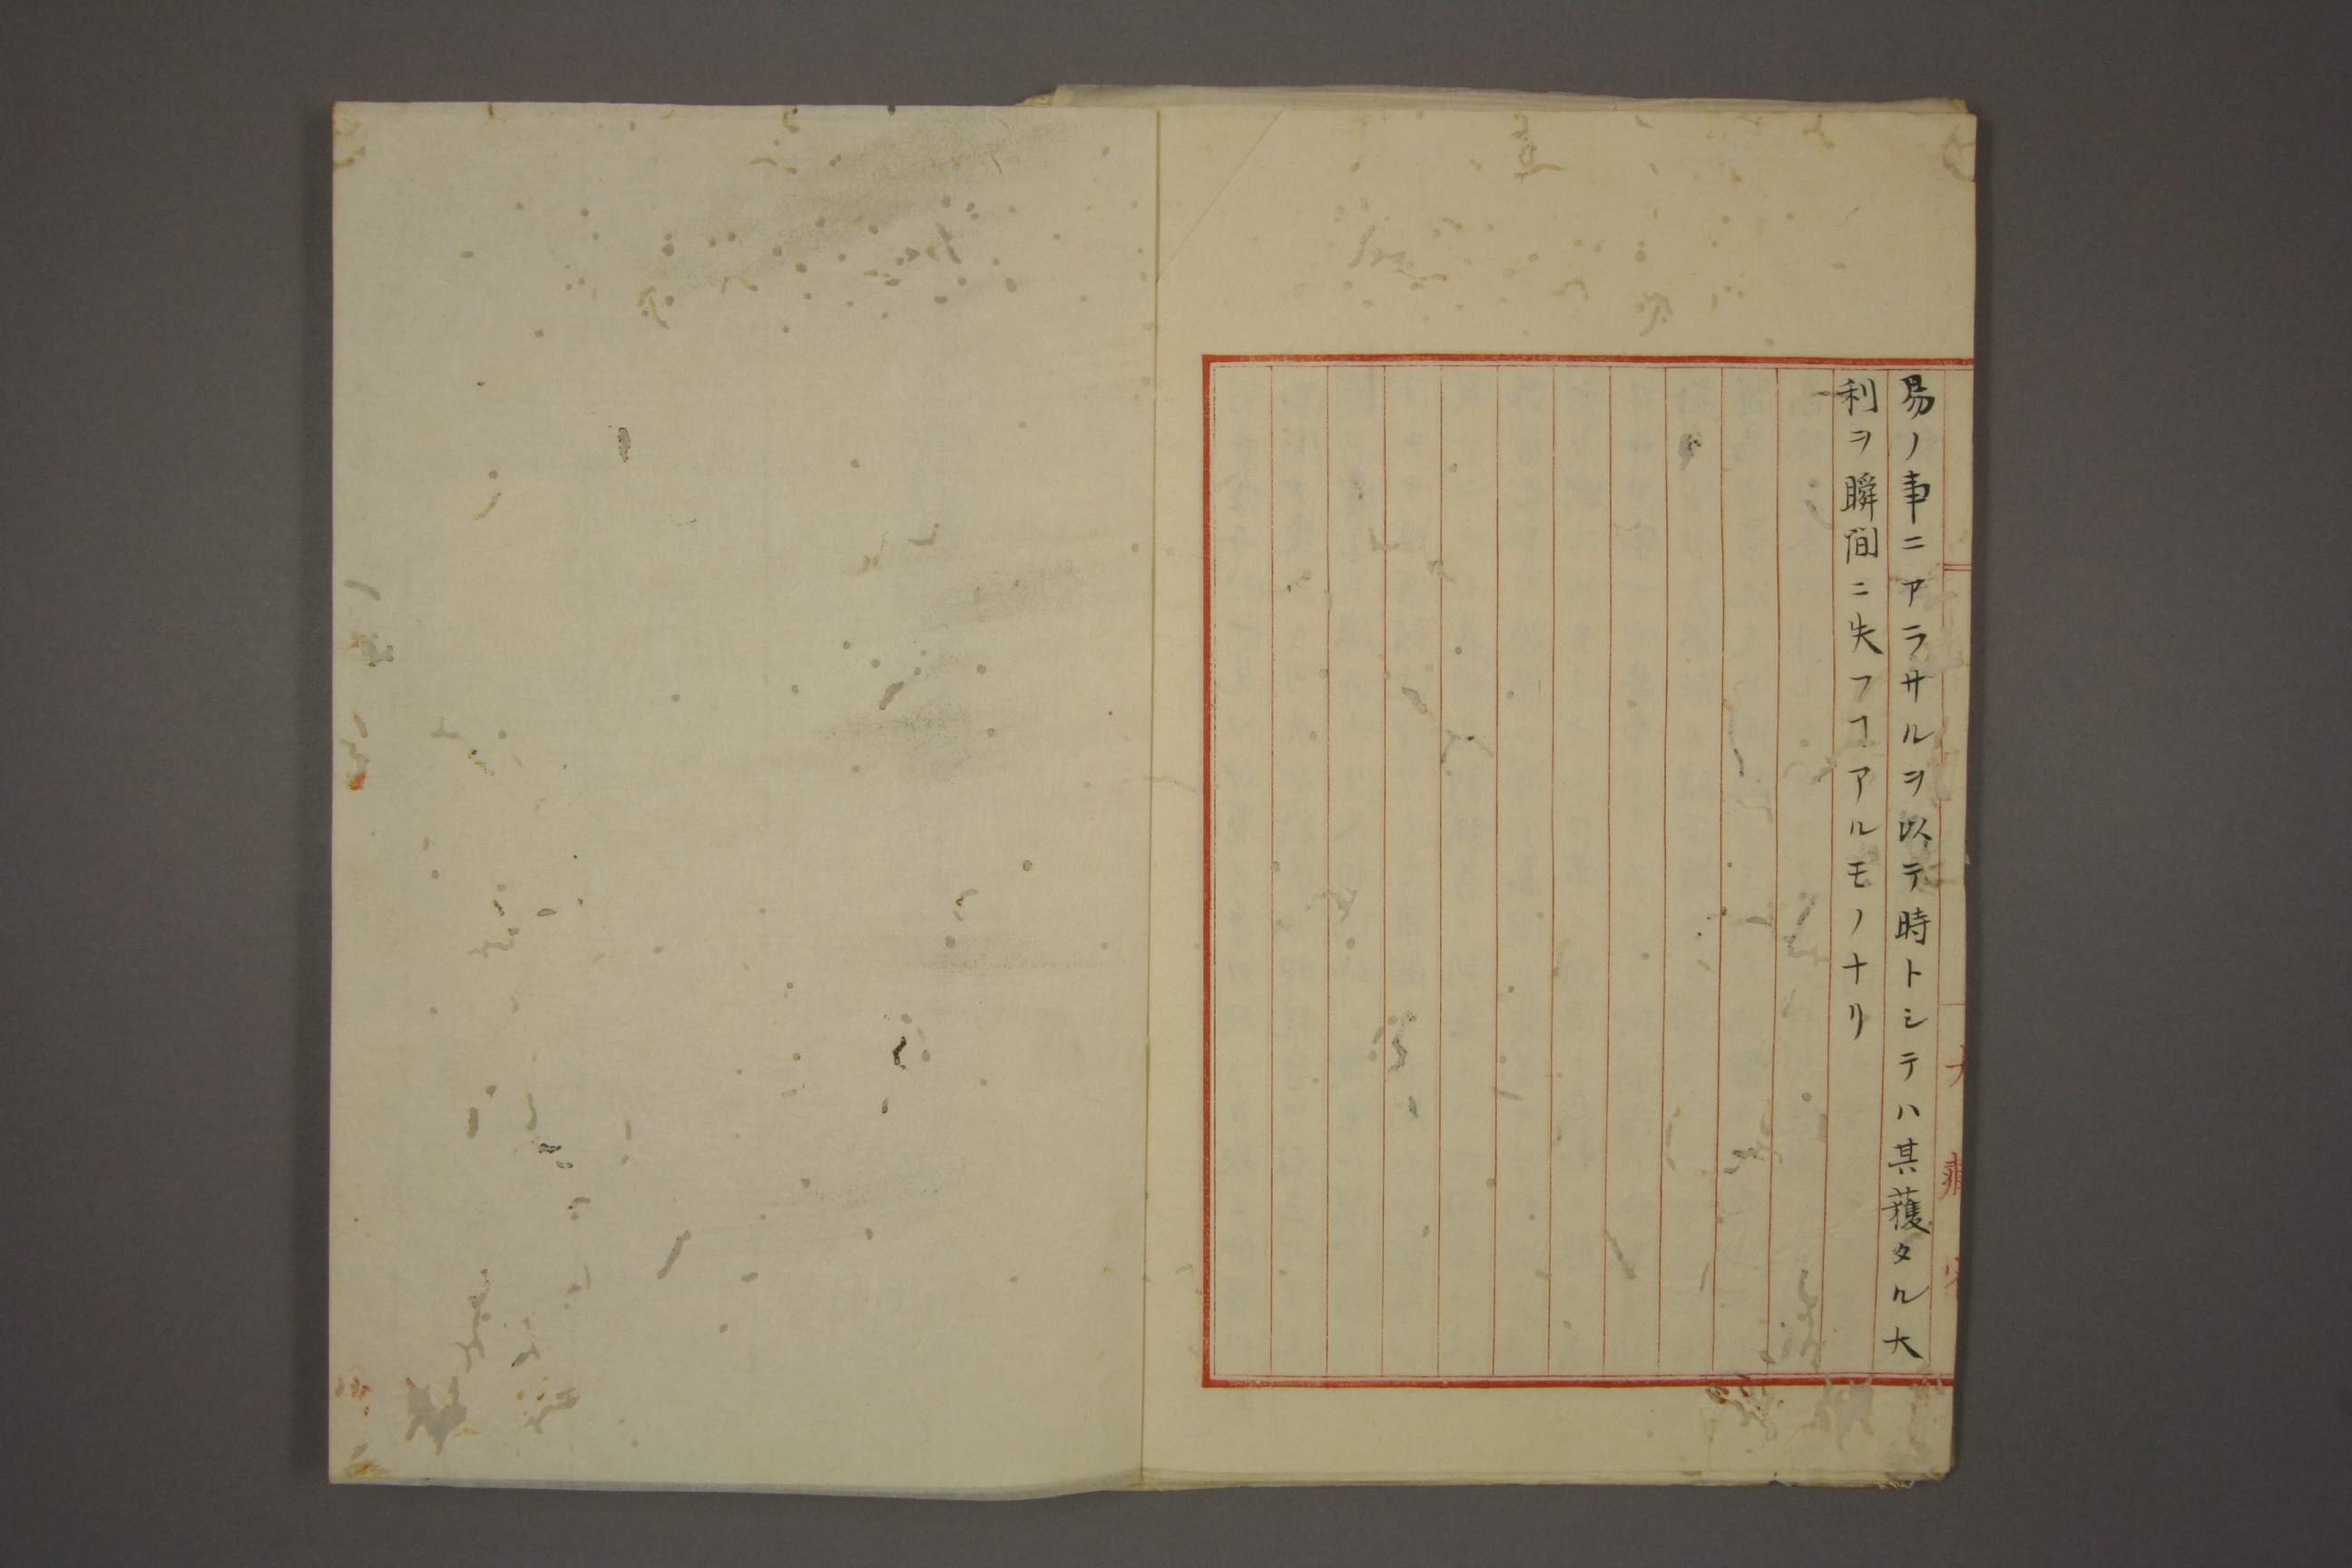 易ノ事ニアラサルヲ以テ時トシテハ其獲タル大
利ヲ瞬間ニ失フヿアルモノナリ